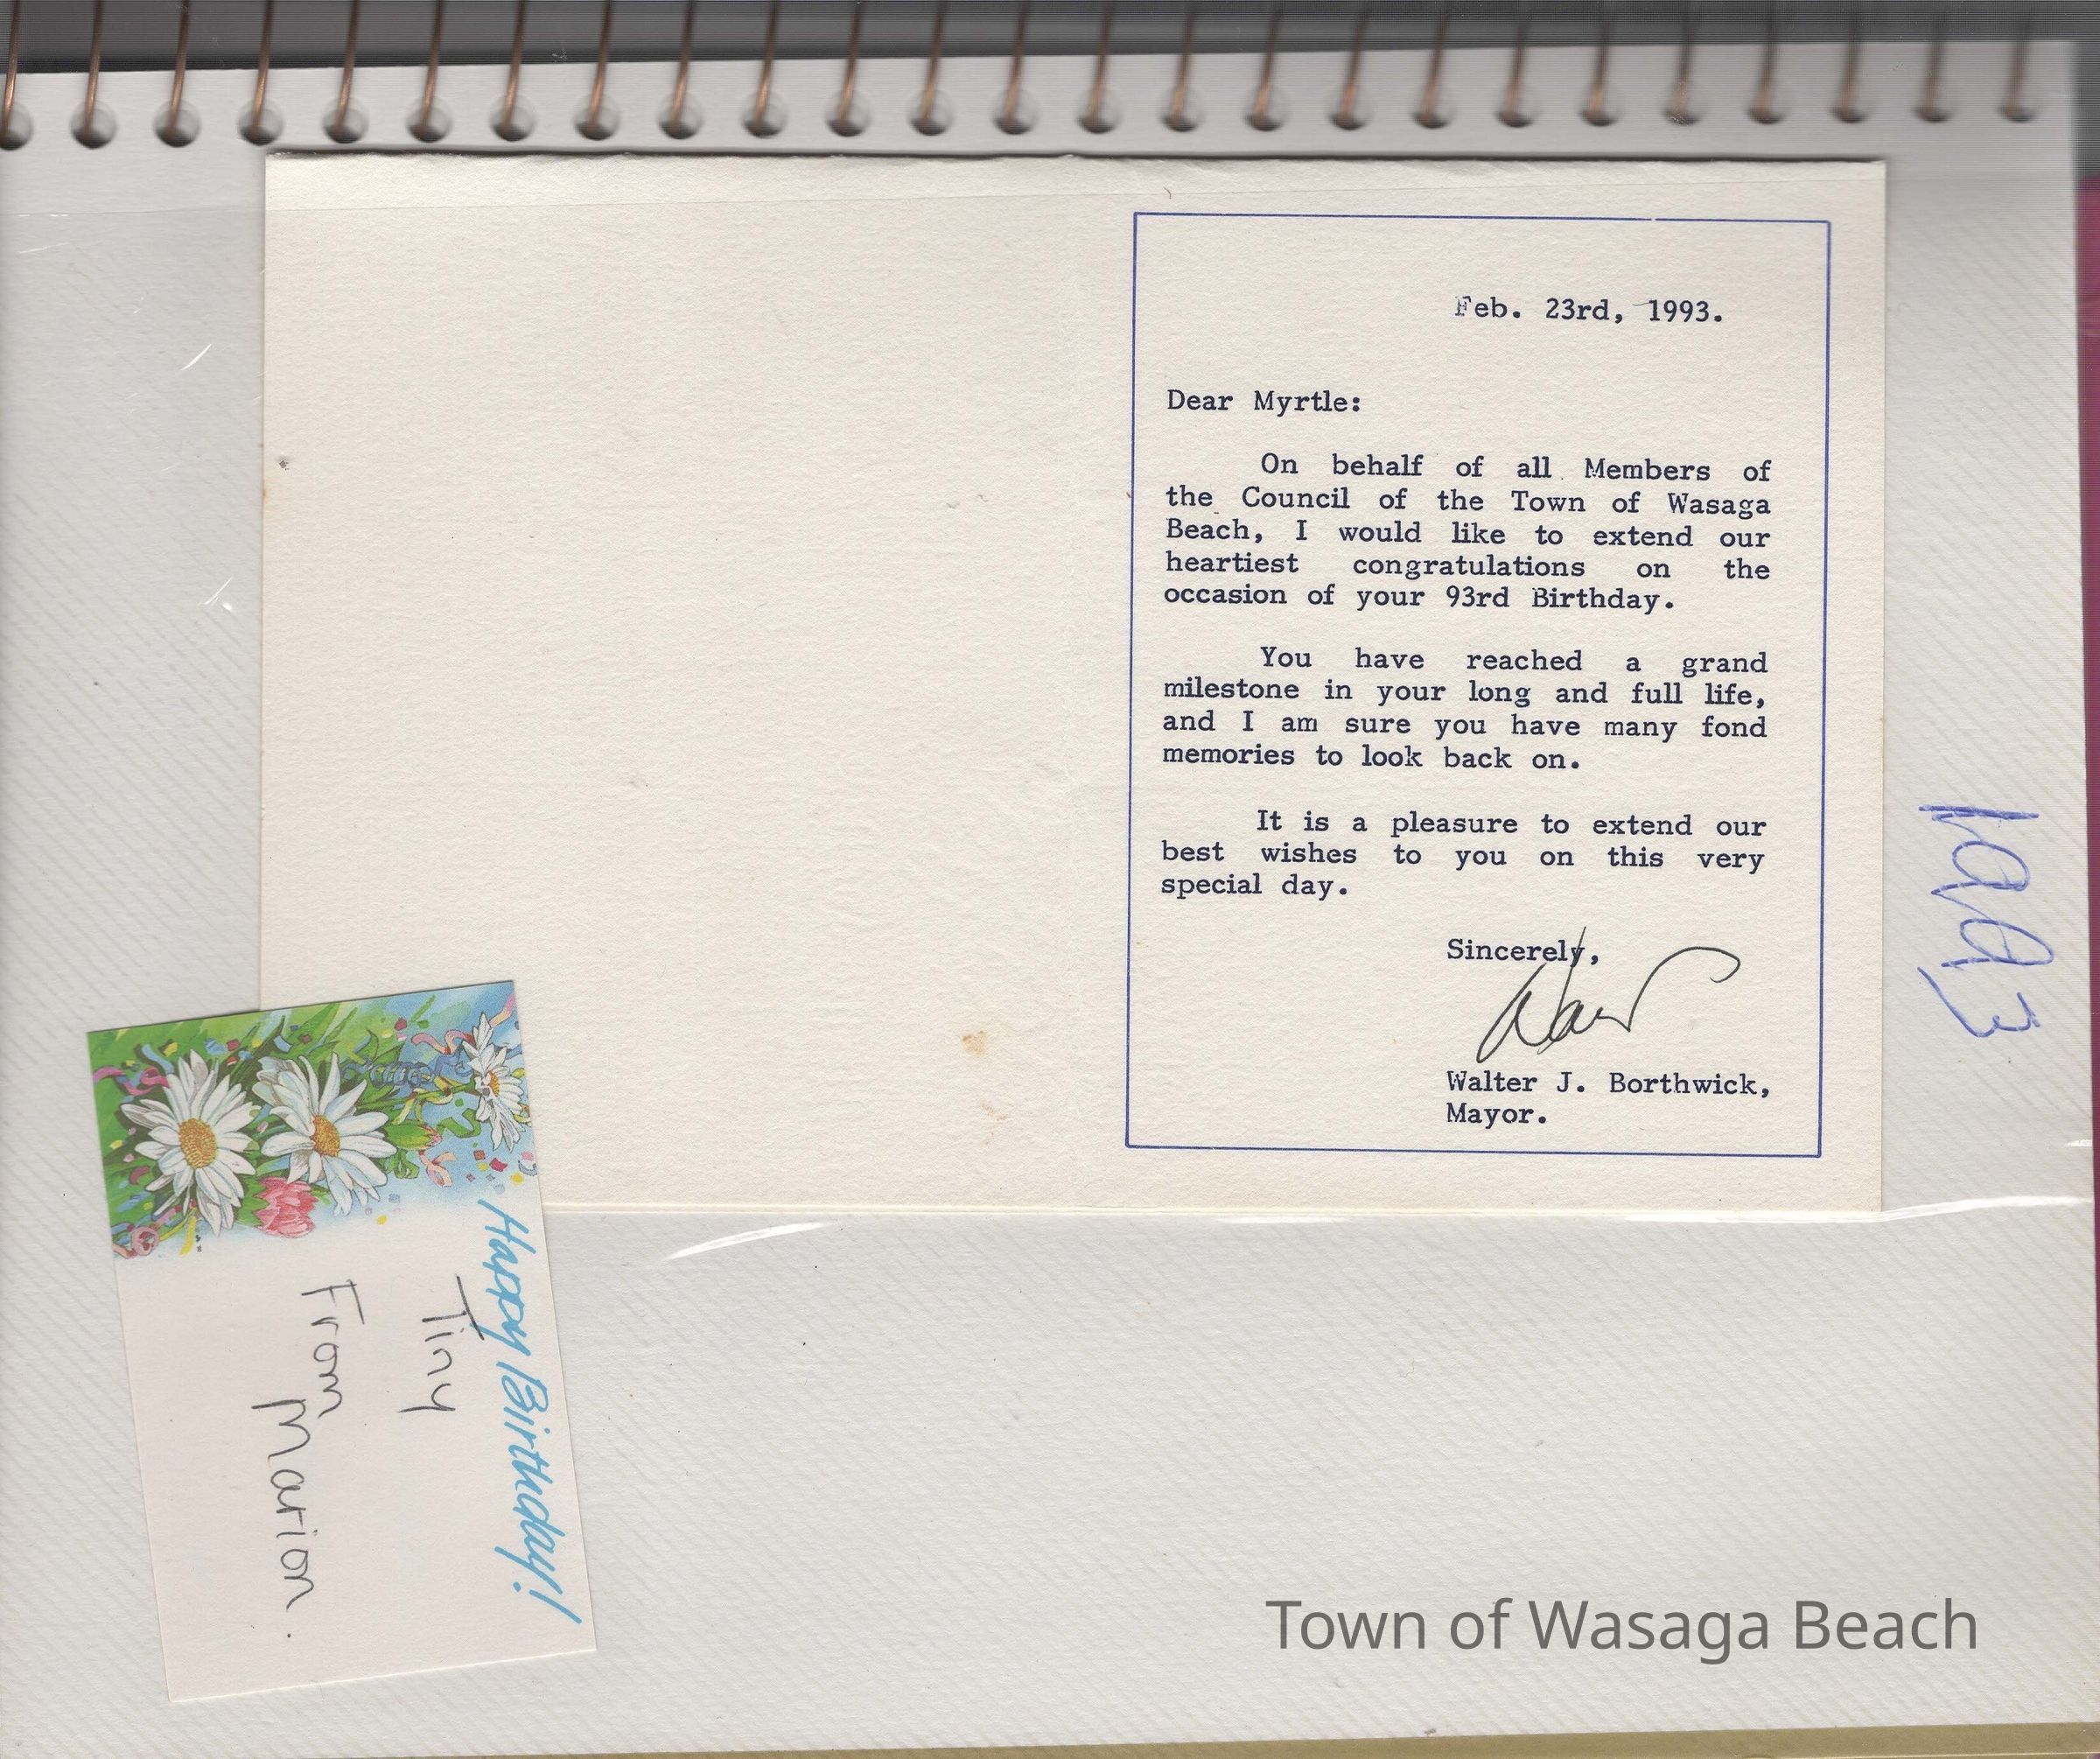 Feb. 23rd, 1993.
Dear Myrtle:
On behalf of all Members of
the Council of the Town of Wasaga
Beach, I would like to extend our
heartiest congratulations on the
occasion of your 93rd Birthday.
You have reached a grand
milestone in your long and full life,
and I am sure you have many fond
memories to look back on.
It is a pleasure to extend our
best wishes to you on this very
special day.
Sincerely,
Walter J. Borthwick,
Mayor.
1993
Happy Birthday!
Tiny
From
Marion.
Town of Wasaga Beach